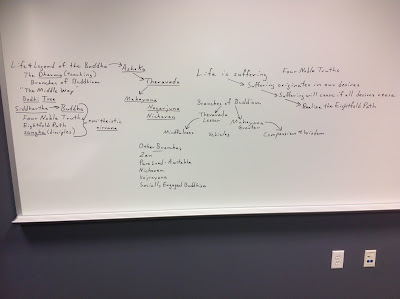 Life & Legend of the Buddha
Ashoka
The Dharma (teaching)
Branches of Buddhism
"The Middle Way"
Bodhi Tree
Siddhartha
Buddha
Four Noble Truths
Eightfold Path
Sangha (disciples)
nontheistic
nirvana
Theravada
Mahayana
Nagarjuna
Nichiren
Life is suffering
Four Noble Truths
Suffering originates in our desires
Suffering will cease if all desires cease
Realize the Eightfold Path
Branches of Buddhism
Theravada
Lesser
Mahayana
Greater
Mindfulness
Vehicles
Compassion & Wisdom
Other Branches
Zen
Pure Land - Amitabha
Nichiren
Vajrayana
Socially Engaged Buddhism